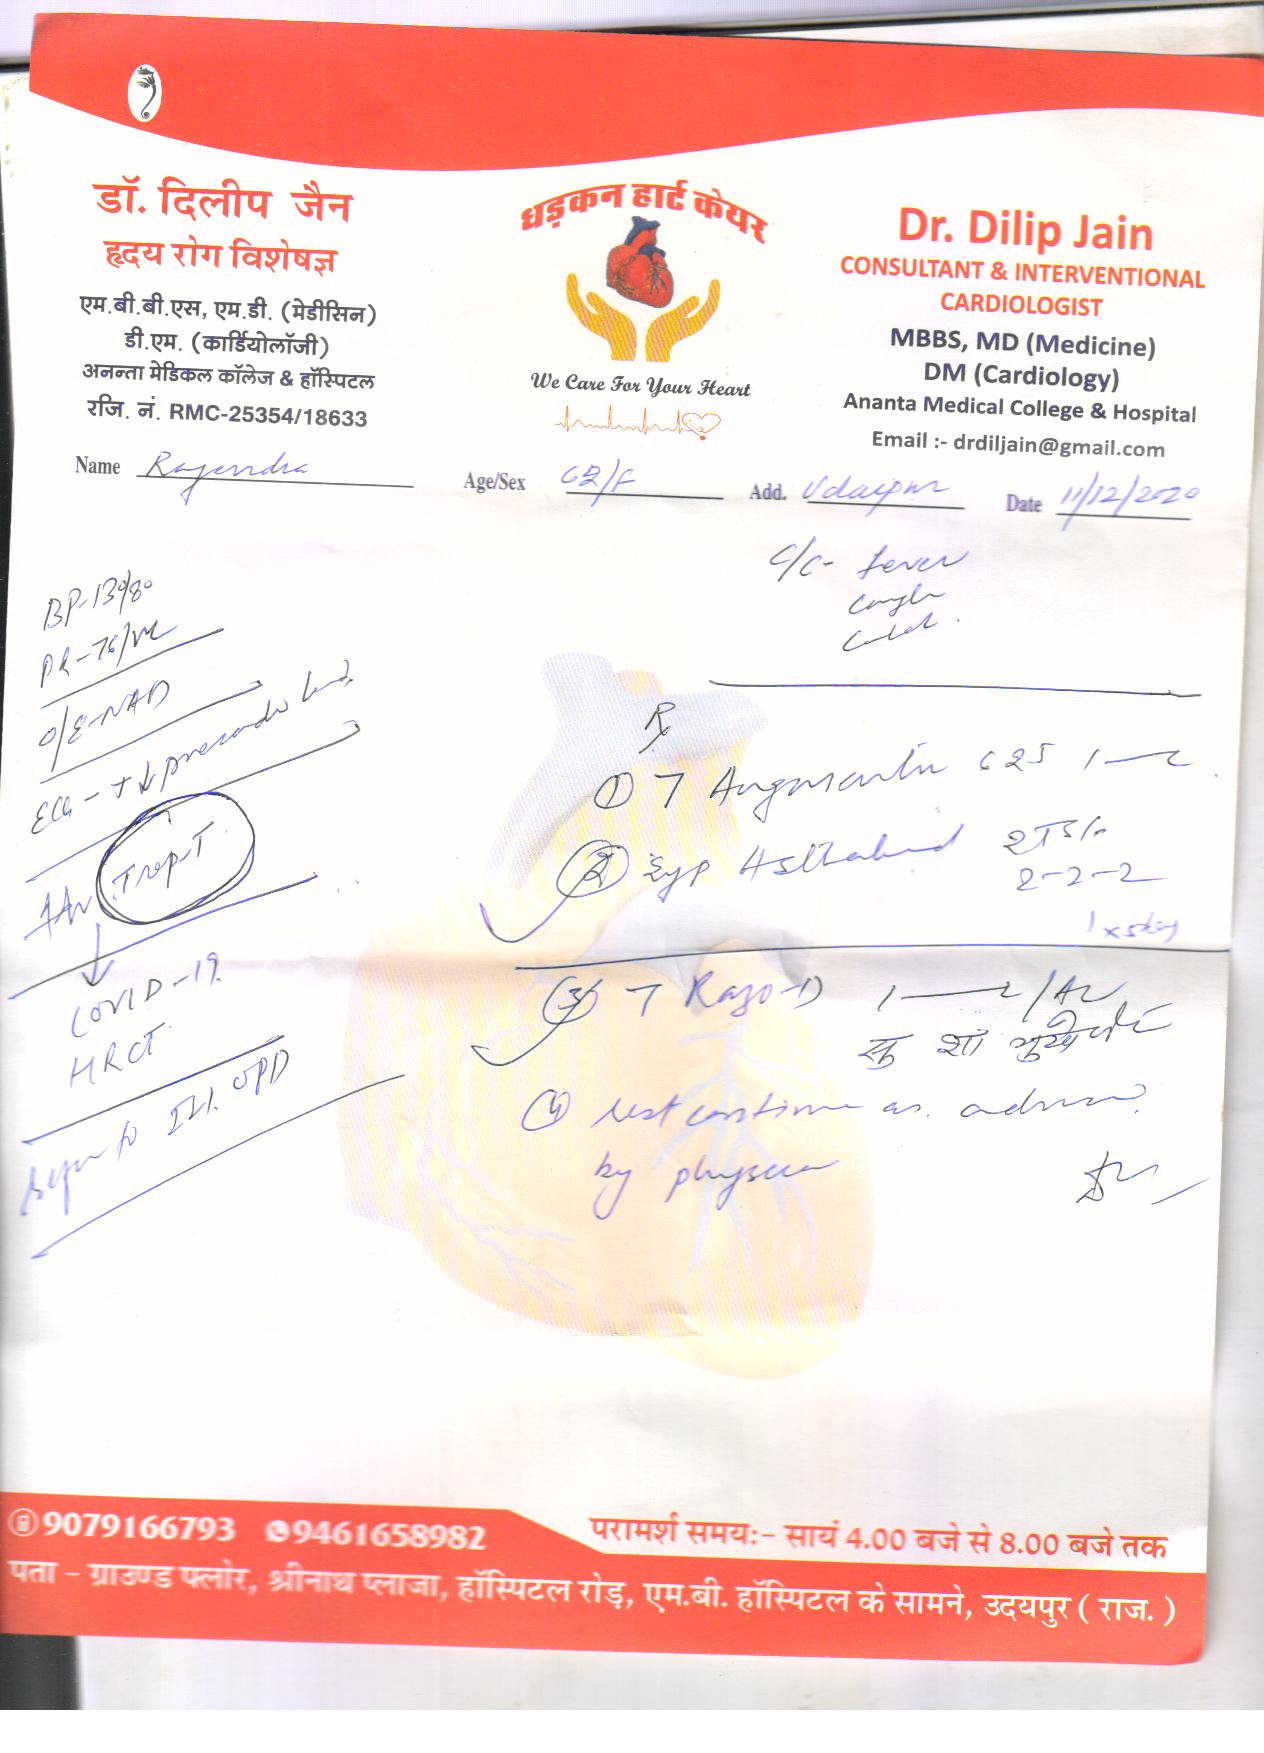 डॉ. दिलीप जैन
हृदय रोग विशेषज्ञ
एम.बी.बी.एस, एम.डी. (मेडीसिन)
डी.एम. (कार्डियोलॉजी)
अनन्ता मेडिकल कॉलेज & हॉस्पिटल
रजि. नं. RMC-25354/18633
धड़कन हार्ट केयर
We Care For Your Heart
Dr. Dilip Jain
CONSULTANT & INTERVENTIONAL
CARDIOLOGIST
MBBS, MD (Medicine)
DM (Cardiology)
Ananta Medical College & Hospital
Email :- drdiljain@gmail.com
Name Rajendra Age/Sex Add. Udaipur Date 11/12/2020
C/C- fever
cough
cold.
BP-130/80
PR-76/
O/E-NAD
ECG - T↓ precordial
Trop-T
COVID-19
HRCT
Refer to ILI OPD
Rx
① T 625 1
② Syp
2-2-2
1 x 5 day
③ T Razo-D 1
④ rest continue as
by physician
9079166793 9461658982
परामर्श समय:- सायं 4.00 बजे से 8.00 बजे तक
पता - ग्राउण्ड फ्लोर, श्रीनाथ प्लाजा, हॉस्पिटल रोड़, एम.बी. हॉस्पिटल के सामने, उदयपुर ( राज. )